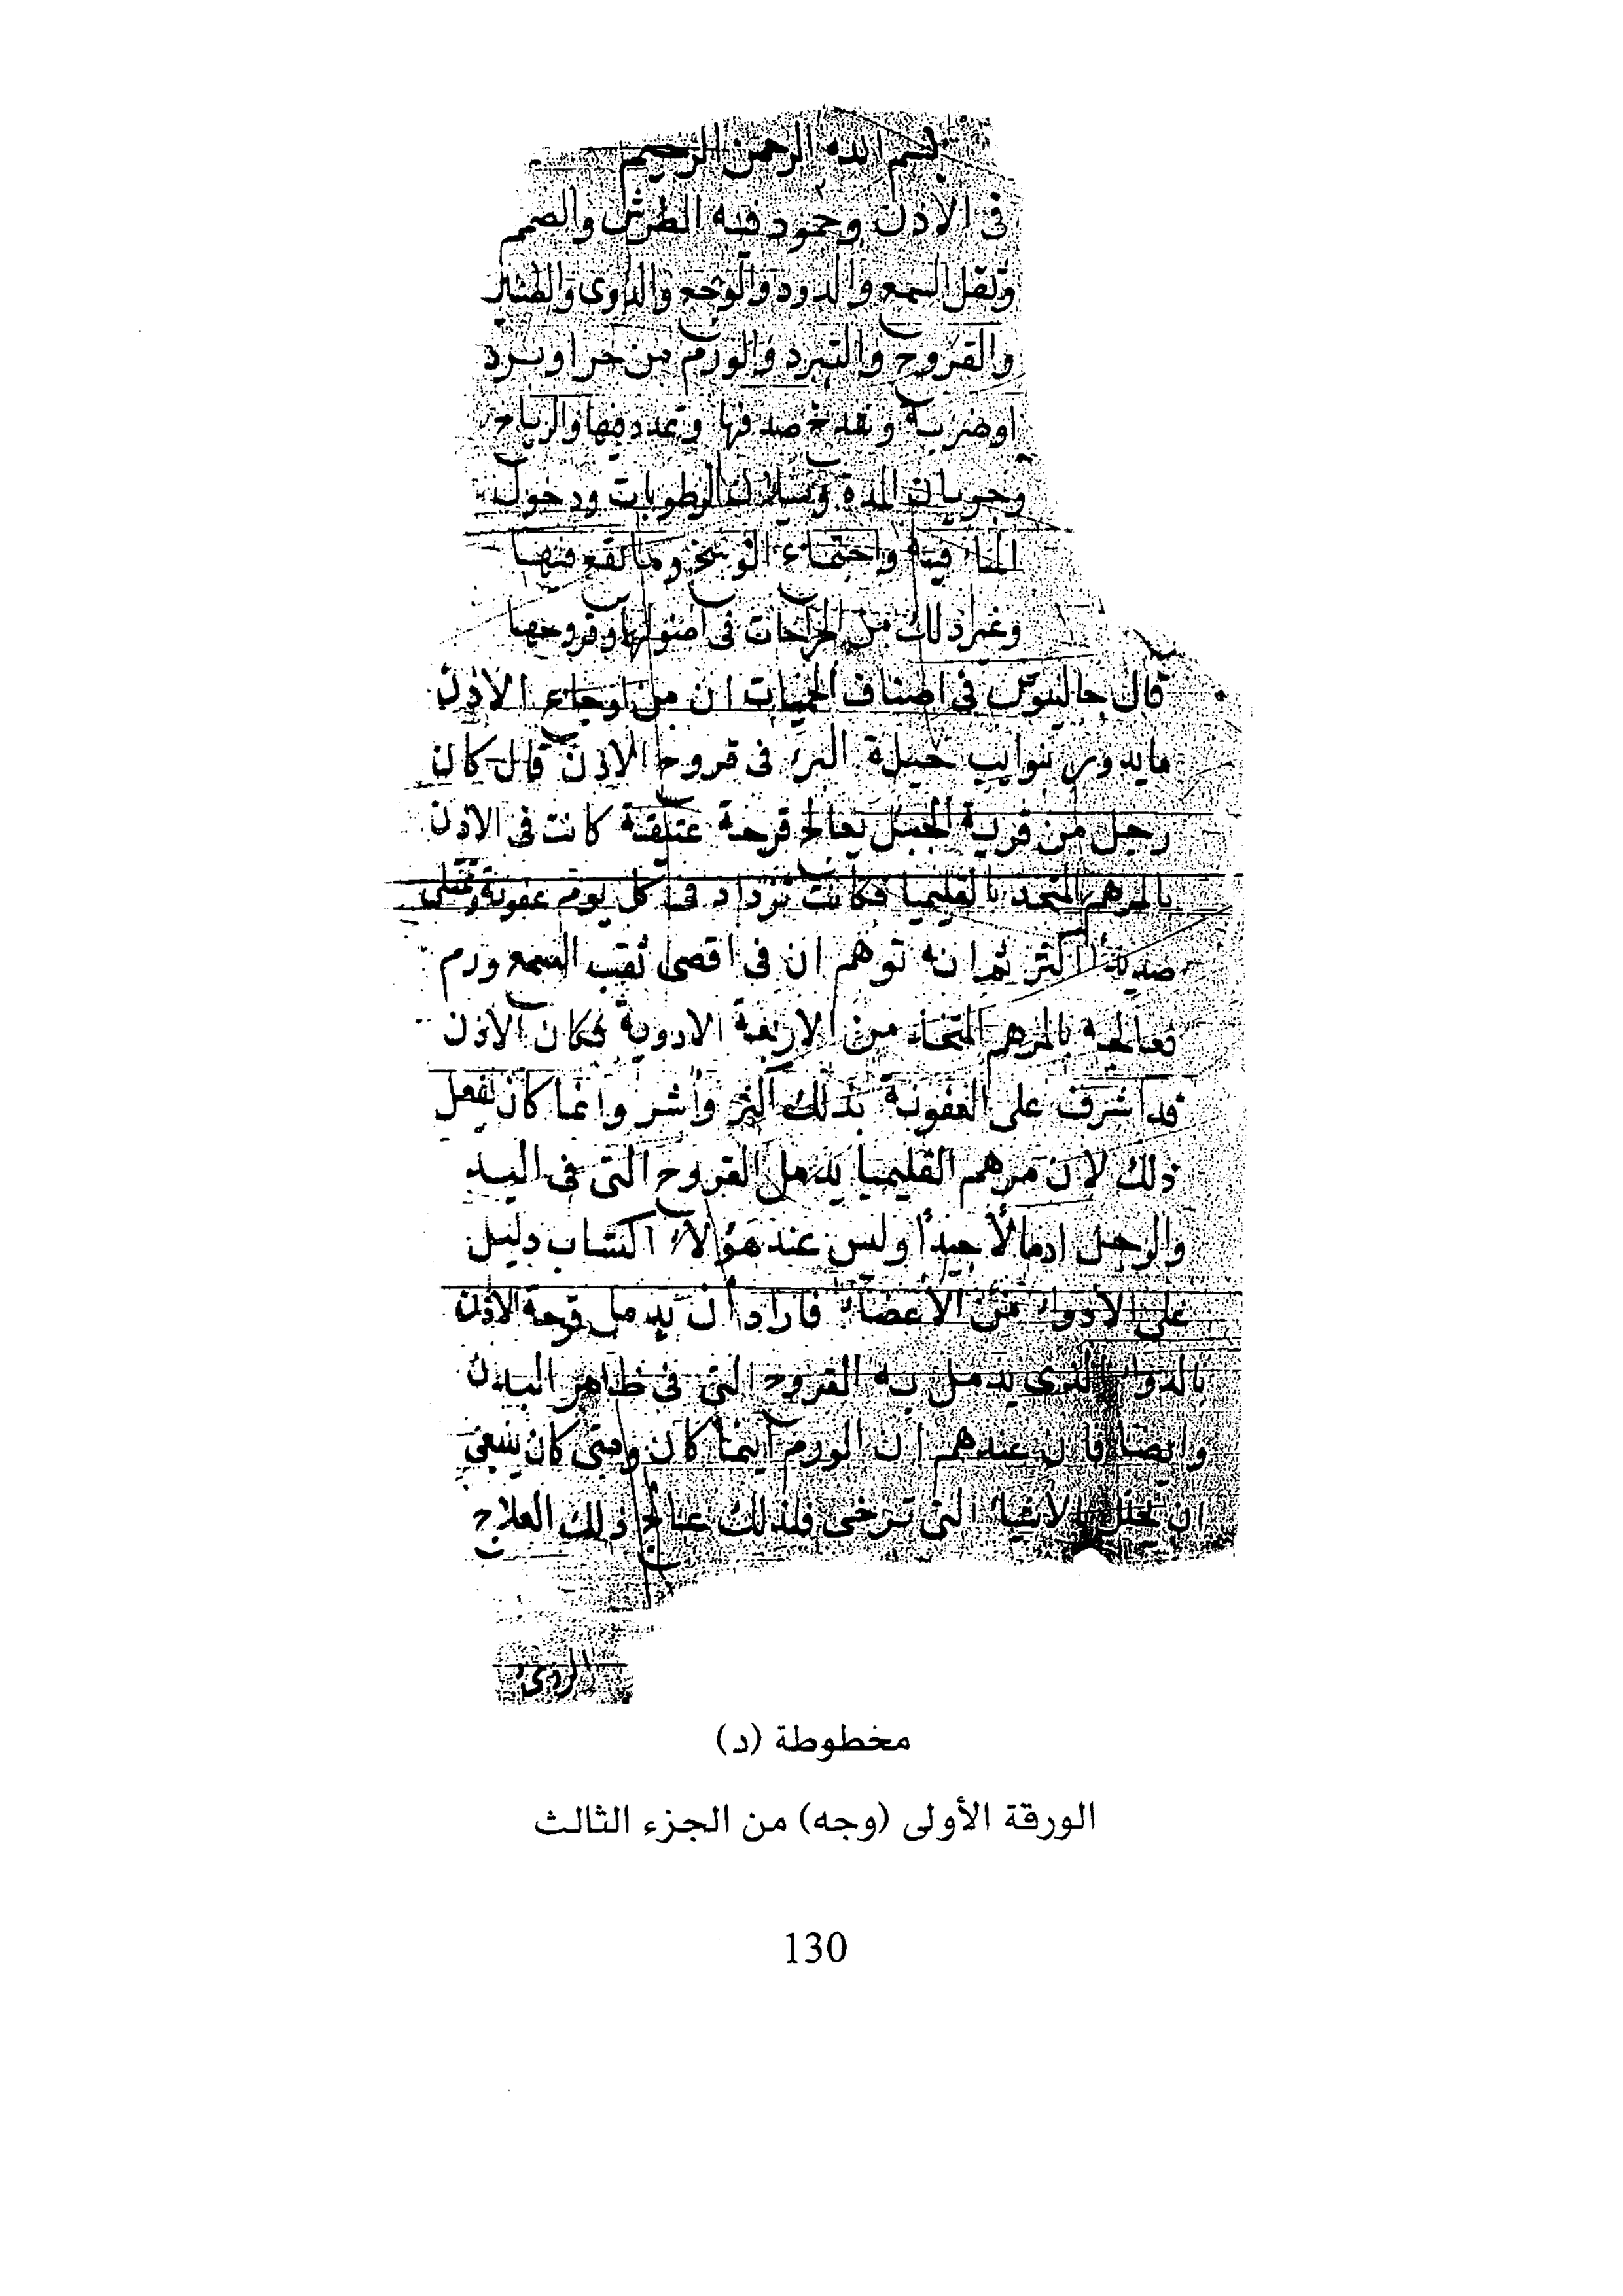 بسم الله الرحمن الرحيم
في الاذن وجمود فيه الطرش والصمم
وثقل السمع والدود والوجع والدوى والطنين
والقروح والتبرد والورم من حر او برد
او ضربة وتفدخ صدفها وتمدد فيها والرياح
وجريان المدة وسيلان الرطوبات ودخول
الما فيه واحتماء الوسخ وما يقع فيها
وغير ذلك من الخراجات في اصولها وقروحها
قال جالينوس في اصناف الحميات ان من اوجاع الاذن
ما يدور بنوايب حيلة البرء في قروح الاذن قال كان
رجل من قرية الجبل يعالج قرحة عتيقة كانت في الاذن
بالمرهم المتخذ بالقليميا فكانت تزداد في كل يوم عفونة وتمتلى
صديدا اكثر ثم انه توهم ان في اقصى ثقب السمع ورم
فعالجه بالمرهم المتخذ من الاربعة الادوية فكان الاذن
قد اشرف على العفونة بذلك اكثر واشر وانما كان يفعل
ذلك لان مرهم القليميا يدمل القروح التي في اليد
والرجل ادمالاً جيداً وليس عند هؤلاء اكتساب دليل
على الادواء من الاعضاء فاراد أن يدمل قرحة الاذن
بالدواء الذى يدمل به القروح التي في ظاهر البدن
وايضا فان عندهم ان الورم اينما كان ومتى كان ينبغي
ان يحلل بالاشياء التي ترخى فلذلك عالج ذلك العلاج
الردى
مخطوطة (د)
الورقة الأولى (وجه) من الجزء الثالث
130